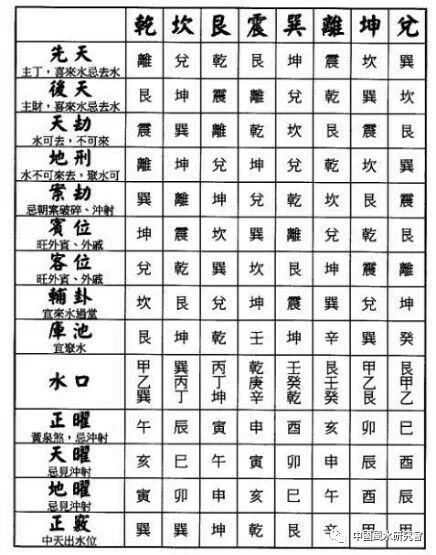 乾 坎 艮 震 巽 離 坤 兌
先天 離 兌 乾 艮 坤 震 坎 巽
主丁，喜來水忌去水
後天 艮 坤 震 離 兌 乾 巽 坎
主財，喜來水忌去水
天劫 震 巽 離 乾 坎 艮 震 艮
水可去，不可來
地刑 離 坤 兌 坤 兌 乾 坎 巽
水不可來去，聚水可
案劫 巽 離 坤 兌 乾 坎 艮 震
忌朝案破碎、沖射
賓位 坤 震 坎 巽 離 兌 乾 艮
旺外賓、外戚
客位 兌 乾 巽 坎 艮 坤 震 離
旺外賓、外戚
輔卦 坎 艮 兌 坤 震 巽 兌 坤
宜來水過堂
庫池 艮 坤 乾 壬 坤 辛 巽 癸
宜聚水
水口 甲乙巽 巽丙丁 丙丁坤 乾庚辛 壬癸乾 艮壬癸 甲乙艮 艮甲乙
正曜 午 辰 寅 申 酉 亥 卯 巳
黃泉煞，忌沖射
天曜 亥 巳 午 寅 卯 申 辰 酉
忌見沖射
地曜 寅 卯 申 亥 巳 午 酉 辰
忌見沖射
正竅 巽 巽 坤 乾 艮 辛 甲 甲
中天出水位
中國風水研究會